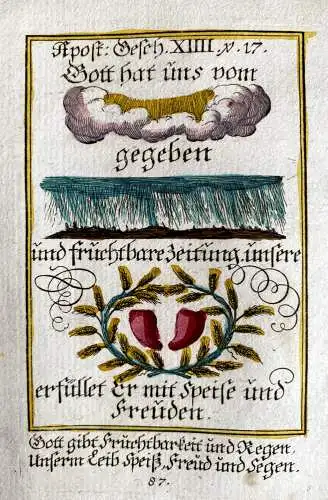 Apost: Gesch. XIIII. v. 17.
Gott hat uns vom
gegeben
und fruchtbare Zeitung, unsere
erfüllet Er mit Speise und
Freuden.
Gott gibt Fruchtbarkeit und Regen,
Unserm Leib Speiß, Freud und Segen.
87.